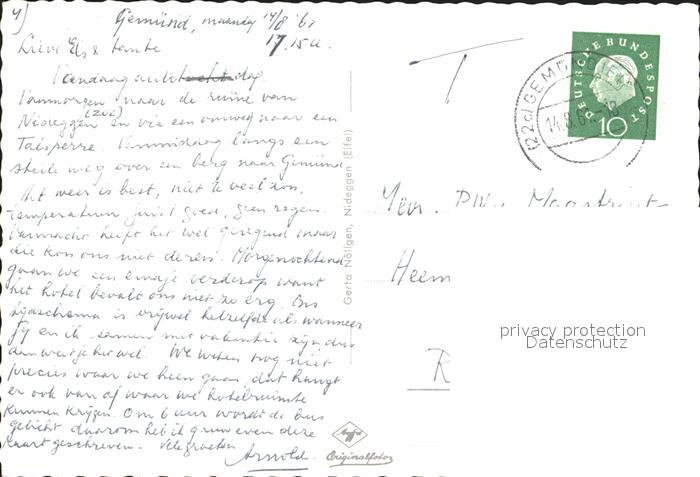 4)
Gemünd, maandag 14/8 '61
17.15 u.
Lieve Els & tante
Vandaag autodag
Vanmorgen naar de ruïne van
Nideggen (zoë) en via een omweg naar een
Talsperre. Vanmiddag langs een
steile weg over een berg naar Gemünd
Het weer is best, niet te veel zon,
temperatuur juist goed, geen regen.
Vannacht heeft het wel geregend maar
die kon ons niet deren. Morgenochtend
gaan we een eindje verderop want
het hotel bevalt ons niet zo erg. Ons
tijdschema is vrijwel hetzelfde als wanneer
jij en ik samen met vakantie zijn dus
dan weet je het wel. We weten nog niet
precies waar we heen gaan, dat hangt
er ook van af waar we hotelruimte
kunnen krijgen. Om 6 uur wordt de bus
gelicht daarom heb ik gauw even deze
kaart geschreven. Vele groeten
Arnold.
Gerta Nöllgen, Nideggen (Eifel)
Agfa
Originalfoto
T
(22c) GEMÜND (EIFEL)
14.8.61
DEUTSCHE BUNDESPOST
10
Heem
R
privacy protection
Datenschutz